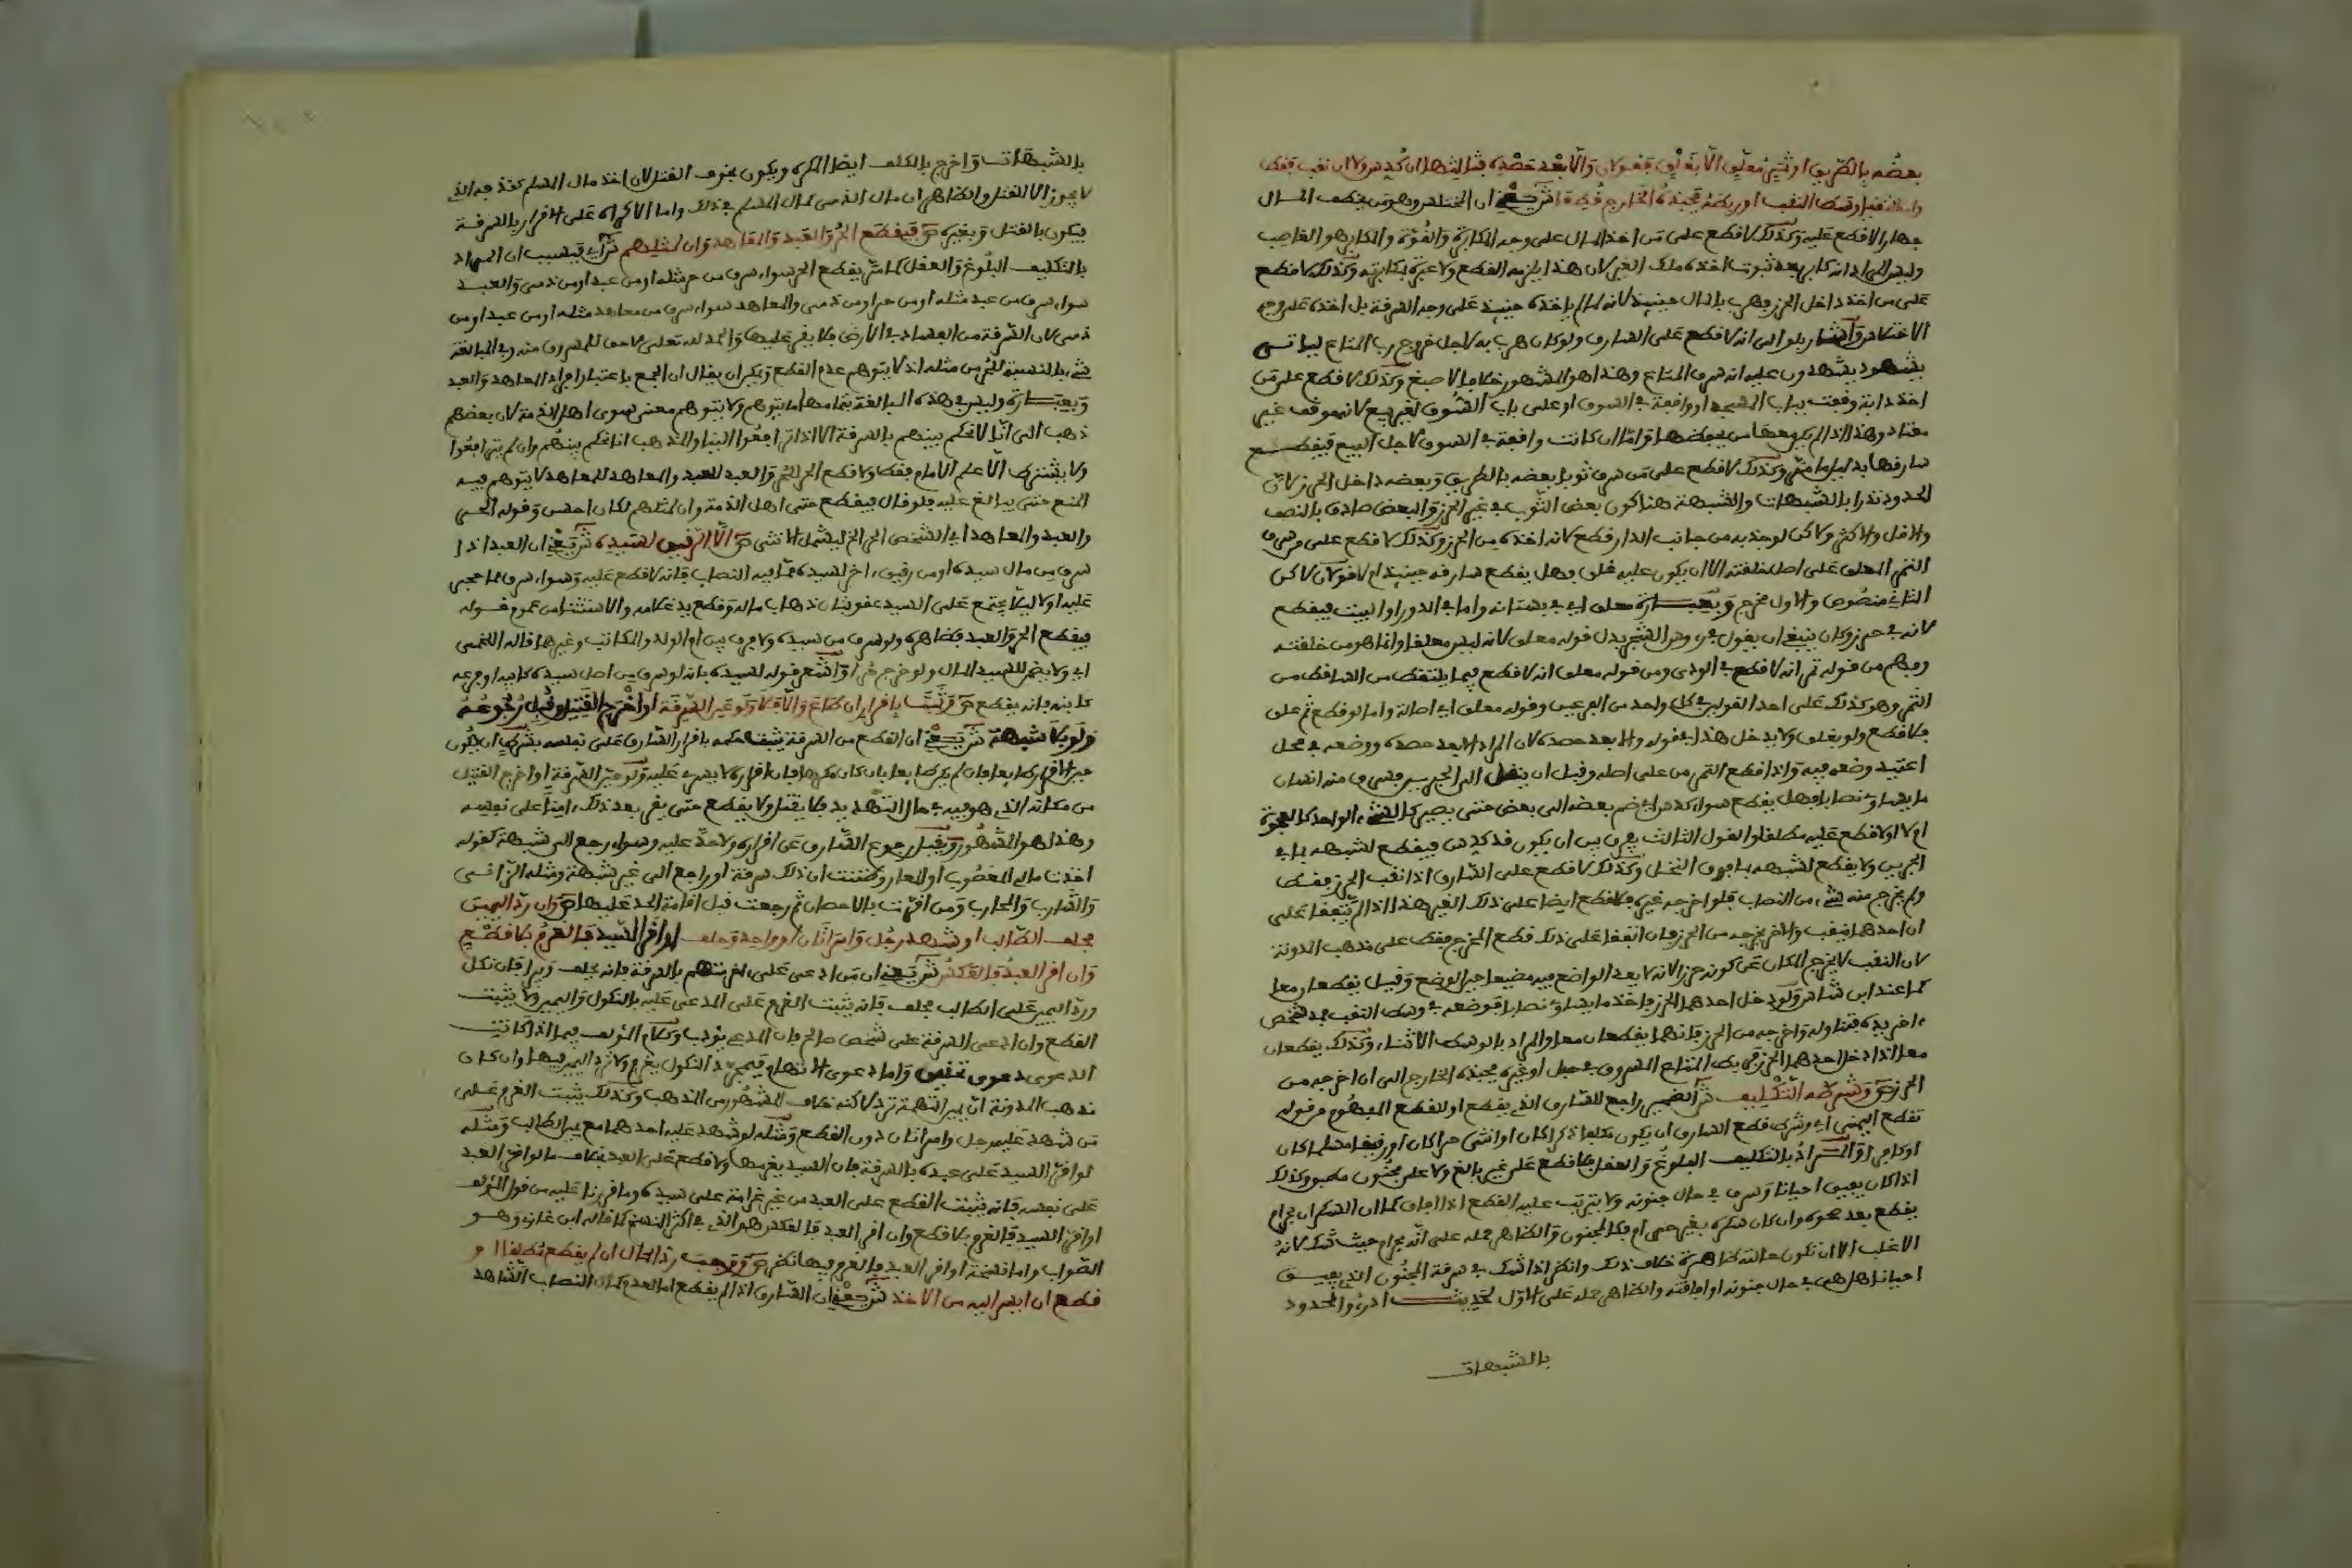 بعضه بالطريق او ثمر معلق الا بغلق فقولان والا بعد حصده فثالثها ان كدس ولا ان نقب فقط
وان التقيا وسط النقب او ربطه فجبذه الخارج قطعا ش يعني ان المختلس وهو من يخطف المال
جهارا لا قطع عليه وكذلك لا قطع على من اخذ المال على وجه المكابرة والقوة والمكابر هو الغاصب
وليس المراد انه كابر بعد ثبوت اخذه ملك الغير لان هذا يلزمه القطع ولا عبرة بمكابرته وكذلك لا قطع
على من اخذ داخل الحرز وهرب بالمال حينيذ لانه لم ياخذه حينيذ على وجه السرقة بل اخذه على وجه
الاختلاس واشار بلو الى انه لا قطع على السارق ولو كان هرب به لاجل خروج رب المتاع لياتي
بشهود يشهدون عليه انه سرق المتاع وهذا هو المشهور خلافا لاصبغ وكذلك لا قطع على من
اخذ دابة وقفت بباب المسجد او واقعة في السوق او على باب السوق لغير بيع لانه موقف غير
معتاد وهذا اذا لم يكن معها من يحفظها واما ان كانت واقعة في السوق لاجل البيع فيقطع
سارقها بدليل ما مر وكذلك لا قطع على من سرق ثوبا بعضه بالطريق وبعضه داخل الحرز لان
الحدود تدرا بالشبهات والشبهة هنا كون بعض الثوب في غير الحرز والبعض صادق بالنصف
والاقل والاكثر ولاكن لو جذبه من جانب الدار قطع لانه اخذه من الحرز وكذلك لا قطع على من سرق
الثمر المعلق على اصل خلقته الا ان يكون عليه غلق وهل يقطع سارقه حينيذ ام لا قولان لاكن
الثاني منصوص والاول مخرج وبعبارة معلق اي في بستانه واما في الدور او البيت فيقطع
لانه في حرز وكان ينبغي ان يقول في روس الشجر بدل قوله معلق لانه ليس معلقا وانما هو من خلقته
وفهم من قوله ثمر انه لا قطع في الودي ومن قوله معلق انه لا قطع فيما يلتقط من الساقط من
الثمر وهو كذلك على احد القولين في كل واحد من الفرعين وقوله معلق اي اصالة واما لو قطع ثم علق
فلا قطع ولو بغلق ولا يدخل هذا في قوله والا بعد حصده لان المراد الا بعد حصده ووضعه في محل
اعتيد وضعه فيه واذا قطع الثمر من على اصله وقبل ان ينقل الى الجرين سرق منه انسان
ما يساوي نصابا فهل يقطع سواء كدس اي ضم بعضه الى بعض حتى يصير كالشيء الواحد كالعجوة
ام لا او لا قطع عليه مطلقا والقول الثالث يفرق بين ان يكون قد كدس فيقطع لشبهه بما في
الجرين ولا يقطع لشبهه بما فوق النخل وكذلك لا قطع على السارق اذا نقب الحرز فقط
ولم يخرج منه شيء من النصاب فلو اخرجه غيره فلا قطع ايضا على ذلك الغير هذا اذا لم يتفقا على
ان احدهما ينقب والاخر يخرجه من الحرز فان اتفقا على ذلك قطع المخرج فقط على مذهب المدونة
لان النقب لا يخرج المكان عن كونه حرزا لانه لا يعد الواضع فيه مضيعا حين الوضع وقيل يقطعان معا
كما عند ابن شاس ولو دخل احدهما الحرز فاخذ ما يساوي نصابا فوضعه في وسط النقب فمد شخص
اخر يده فتناوله واخرجه من الحرز فانهما يقطعان معا والمراد بالوسط الاثناء وكذلك يقطعان
معا اذا دخل احدهما الحرز فربط المتاع المسروق في حبل او غيره فجبذه الخارج الى ان اخرجه من
الحرز ص وشرطه التكليف ش الضمير راجع للسارق الذي يقطع او للقطع المفهوم من قوله
تقطع اليمنى اي وشرط قطع السارق ان يكون مكلفا ذكرا كان او انثى حرا كان او رقيقا مسلما كان
او كافرا والمراد بالتكليف البلوغ والعقل فلا قطع على غير بالغ ولا على مجنون مطبق وكذلك
اذا كان يفيق احيانا وسرق في حال جنونه ولا يترتب عليه القطع اذا افاق كما ان السكران بحرام
يقطع بعد صحوه وان كان سكره بغير حرام فكالمجنون والظاهر حمله على انه بحرام حيث شك لانه
الاغلب الا ان تكون حالته ظاهرة خلاف ذلك وانظر اذا شك في سرقة المجنون الذي يفيق
احيانا هل هي في حال جنونه او افاقته والظاهر حمله على الاول لحديث ادرءوا الحدود
بالشبهات
بالشبهات واخرج بالمكلف ايضا المكره ويكون بخوف القتل لان اخذ مال المسلم كقذفه الذي
لا يجوز الا للقتل والظاهر ان مال الذمي كمال المسلم في ذلك واما الاكراه على الاقرار بالسرقة
فيكون بالقتل وبغيره ص فيقطع الحر والعبد والمعاهد وان لمثلهم ش اي فبسبب ان المراد
بالتكليف البلوغ والعقل كما مر يقطع الحر سواء سرق من حر مثله او من عبد او من ذمي والعبد
سواء سرق من عبد مثله او من حر او من ذمي والمعاهد سواء سرق من معاهد مثله او من عبد او من
ذمي لان السرقة من الفساد في الارض فلا يقر عليها والحد لله تعلى لا حق للمسروق منه وفي المبالغة
شيء بالنسبة للحر من مثله اذ لا يتوهم عدم القطع ويمكن ان يقال ان الجمع باعتبار افراد المعاهد والعبد
وبعبارة وليس في هذه المبالغة بتمامها ما يتوهم ولا يتوهم معنى سوى اهل الذمة لان بعضهم
ذهب الى انا لا نحكم بينهم بالسرقة الا اذا ترافعوا الينا والمذهب انا نحكم بينهم وان لم يترافعوا
ولا يشترط الا علم الامام فقط ولا قطع الحر للحر والعبد للعبد والمعاهد للمعاهد لا يتوهم فيه
المنع حتى يبالغ عليه فلو قال فيقطع حتى اهل الذمة وان لمثلهم لكان احسن وقوله الحر
والعبد والمعاهد اي الشخص الحر الخ ليشمل الانثى ص الا الرقيق لسيده ش يعني ان العبد اذا
سرق من مال سيده او من رقيق اخر لسيده ما فيه النصاب فانه لا قطع عليه وسواء سرق مما حجر
عليه او لا ليلا يجتمع على السيد عقوبتان ذهاب ماله وقطع يد غلامه والاستثنا من عموم قوله
فيقطع الحر والعبد فظاهره ولو سرق من سيده ولا فرق بين ام الولد والمكاتب وغيرهما قاله اللخمي
اي ولا يضمن للسيد المال ولو خرج حرا واشعر قوله لسيده بانه لو سرق من اصل سيده كابيه او فرعه
كابنه فانه يقطع ص وثبتت باقرار ان طاع والا فلا ولو عين السرقة او اخرج القتيل وقبل رجوعه
ولو بلا شبهة ش يعني ان القطع من السرقة يثبت حكمه باقرار السارق على نفسه بشرط ان يكون
حين الاقرار طايعا فان لم يكن طايعا بان كان مكرها فان اقراره لا يسري عليه ولو عين السرقة او اخرج القتيل
من مكانه الذي هو فيه في حال التهديد فلا يقتل ولا يقطع حتى يقر بعد ذلك امينا على نفسه
وهذا هو المشهور ويقبل رجوع السارق عن اقراره ولا حد عليه وسواء رجع الى شبهة كقوله
اخذت مالي المغصوب او المعار وظننت ان ذلك سرقة او راجع الى غير شبهة ومثله الزاني
والشارب والمحارب ومن اقرت بالاحصان ثم رجعت قبل اقامة الحد عليها ص وان رد اليمين
فحلف الطالب او شهد رجل وامراتان او واحد وحلف او اقر السيد فالغرم بلا قطع
وان اقر العبد فالعكس ش يعني ان من ادعى على اخر متهم بالسرقة فانه يحلف ويبرا فان نكل
ورد اليمين على الطالب فحلف فانه يثبت الغرم على المدعى عليه بالنكول واليمين ولا يثبت
القطع وان ادعى السرقة على شخص صالح فان المدعي يؤدب وكلام المؤلف فيما اذا كانت
الدعوى دعوى تحقيق واما دعوى الاتهام فبمجرد النكول يغرم ولا ترد اليمين فيها وان كان
مذهب المدونة ان يمين التهمة ترد لاكنه خلاف المشهور من المذهب وكذلك يثبت الغرم على
من شهد عليه رجل وامراتان دون القطع ومثله لو شهد عليه احدهما مع يمين الطالب ومثله
لو اقر السيد على عبده بالسرقة فان السيد يغرمها ولا قطع على العبد بخلاف ما لو اقر العبد
على نفسه فانه يثبت القطع على العبد من غير غرامة على سيده وما قررنا عليه من قول المؤلف
او اقر السيد فالغرم بلا قطع وان اقر العبد فالعكس هو الذي في اكثر النسخ كما قاله ابن غازي وهو
الصواب واما نسخة او اقر العبد فالغرم ففيها نظر ص ووجب رد المال ان لم يقطع مطلقا او
قطع ان ايسر اليه من الاخذ ش يعني ان السارق اذا لم يقطع اما لعدم كمال النصاب الشاهد